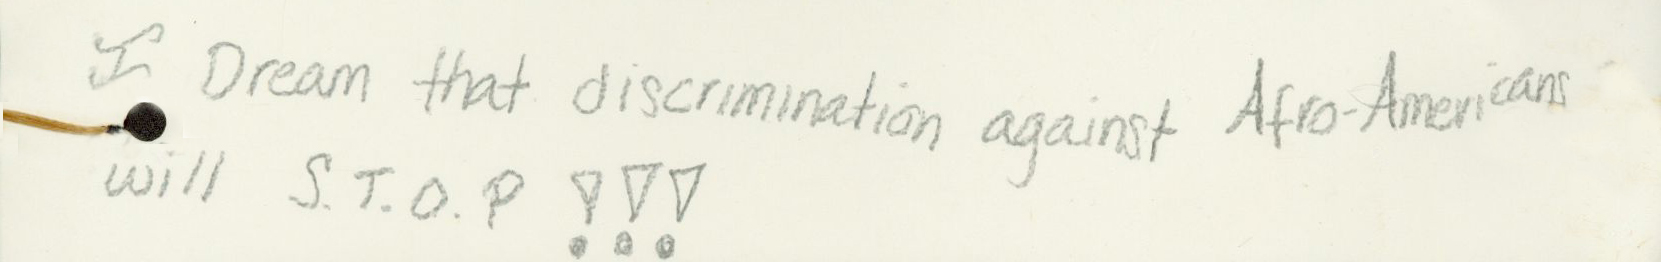 I Dream that discrimination against Afro-Americans
will S.T.O.P !!!